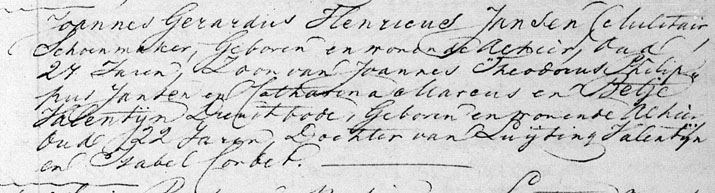 Joannes Gerardus Henricus Jansen Celulitair,
Schoenmaker, Geboren en wonende Alhier, Oud
27 Jaren, Zoon van Joannes Theodorus Philip-
pus Jansen en Catharina Marcus en Betje
Valentijn Dienstbode, Geboren en wonende Alhier
Oud 22 Jaren Dochter van Luijting Valentijn
en Isabel Corbet.